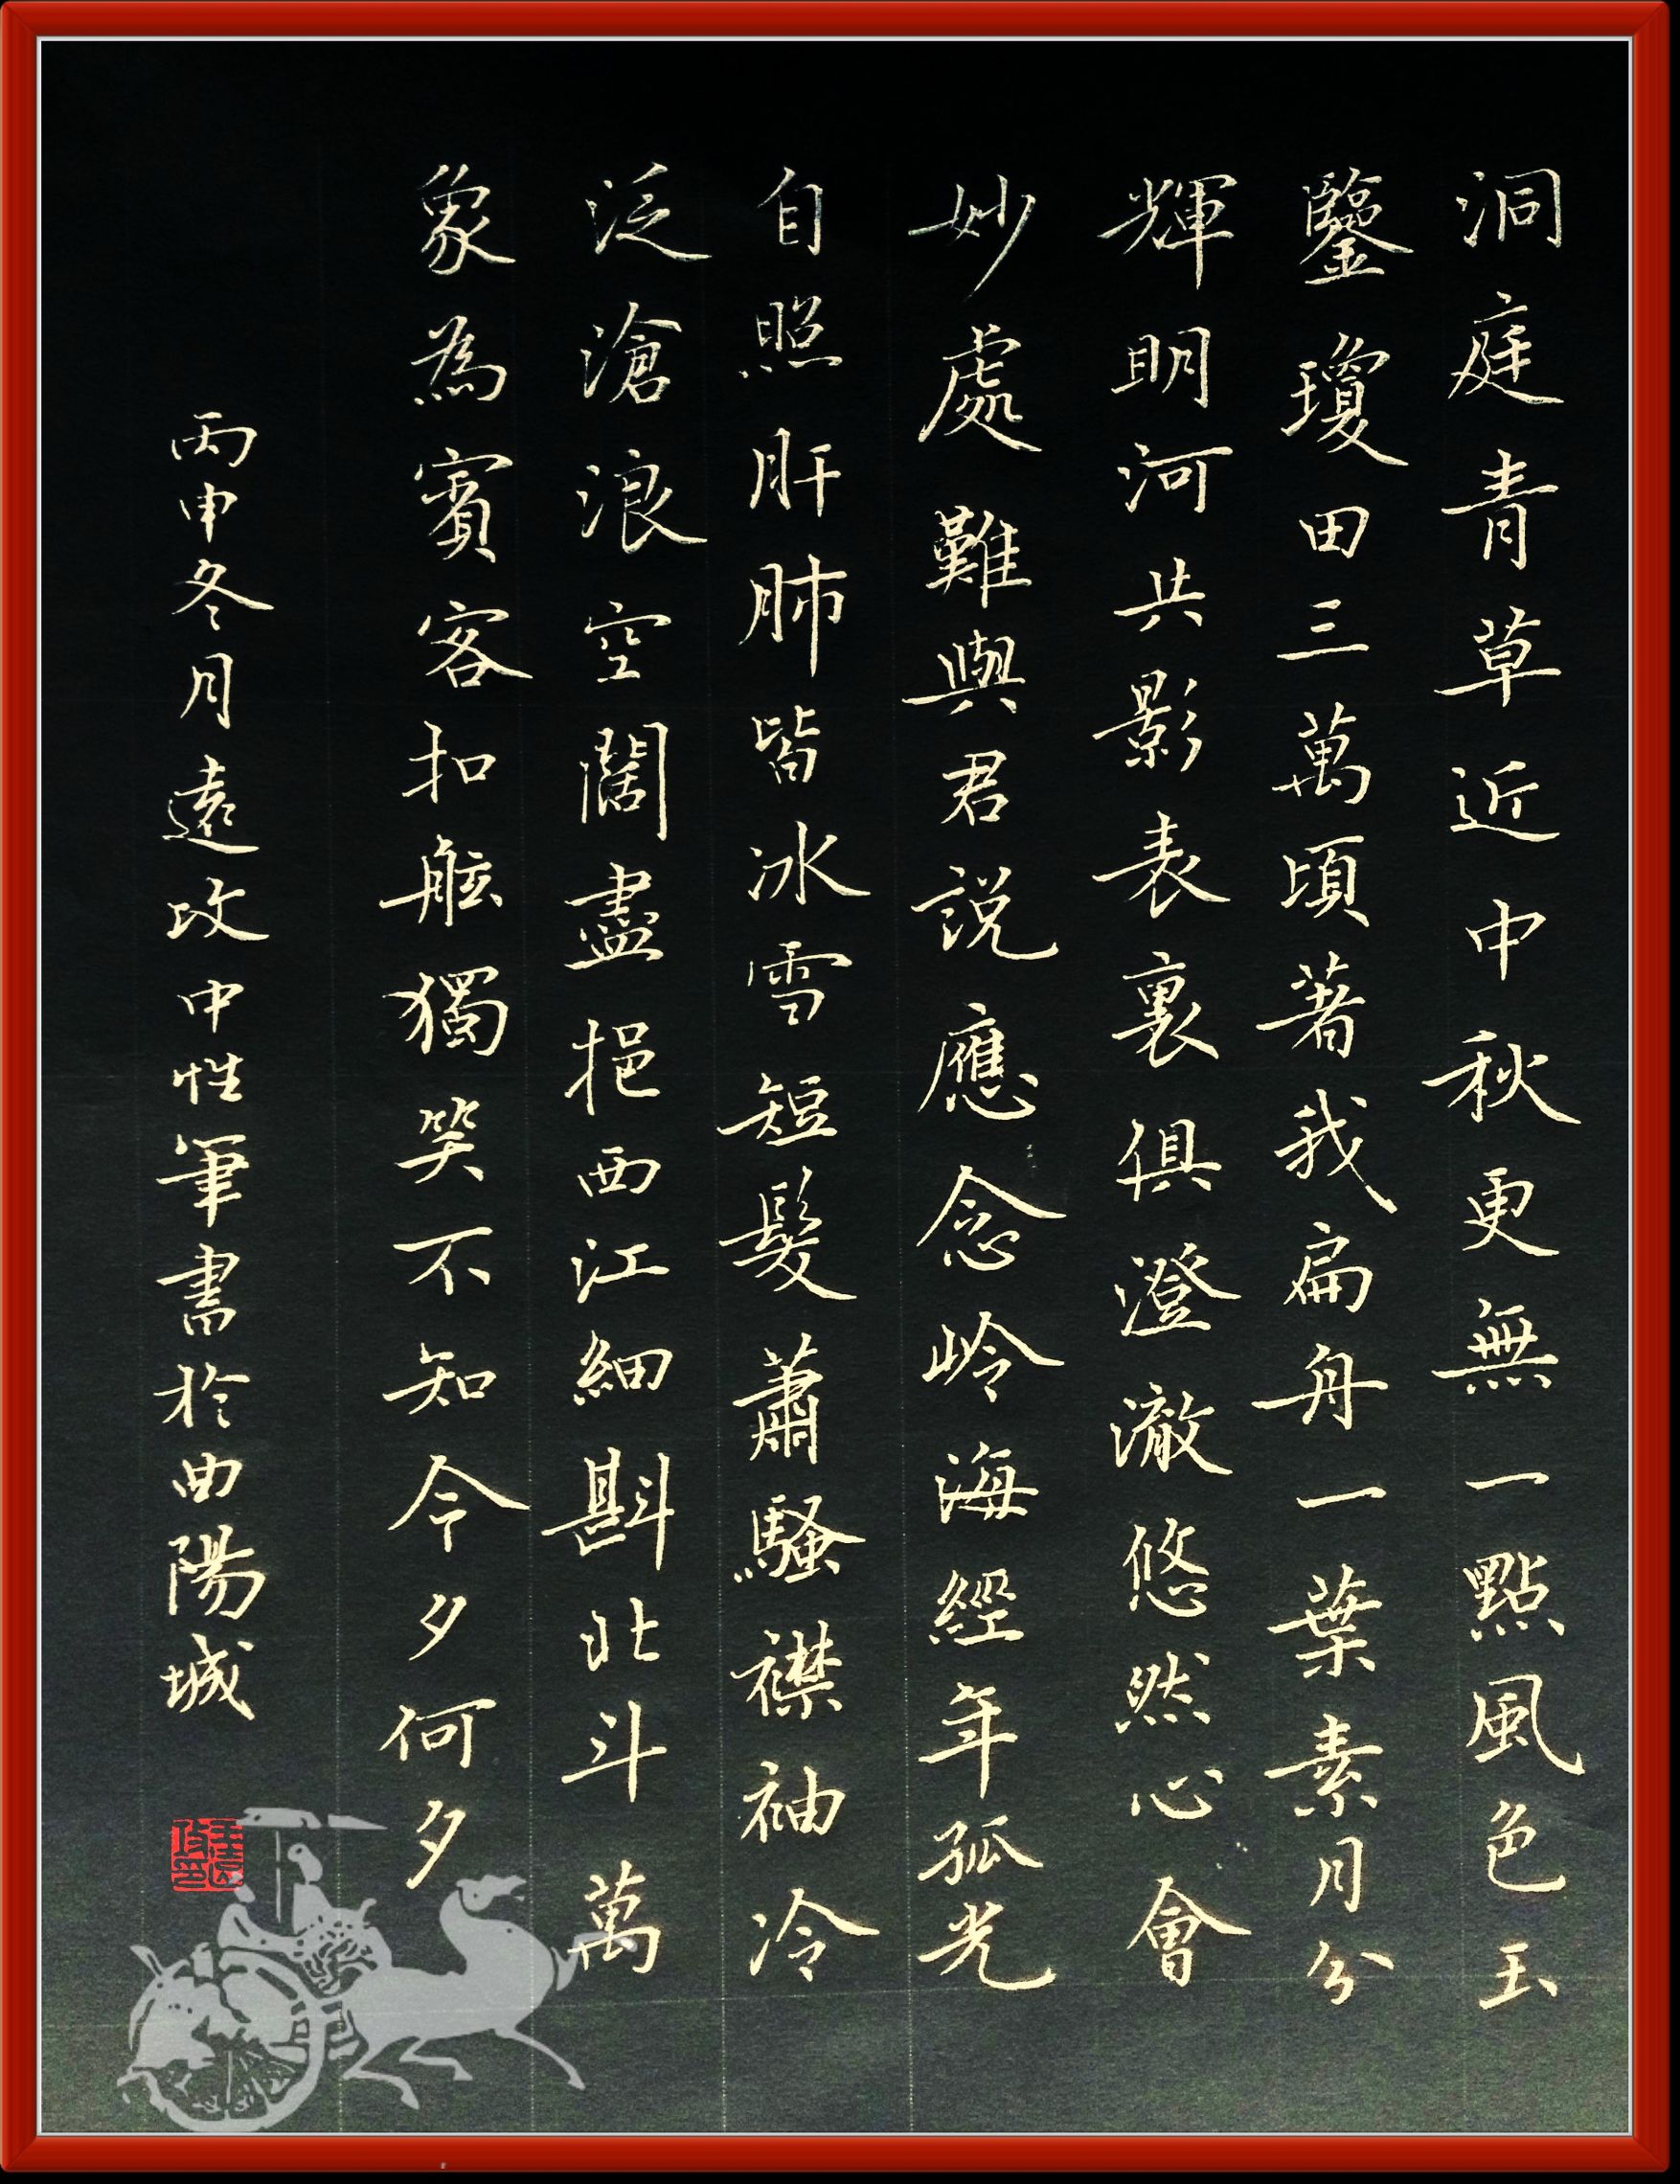 洞庭青草近中秋更無一點風色玉
鑒瓊田三萬頃著我扁舟一葉素月分
輝明河共影表裏俱澄澈悠然心會
妙處難與君説應念岭海經年孤光
自照肝肺皆冰雪短髮蕭騷襟袖冷
泛滄浪空闊盡挹西江細斟北斗萬
象為賓客扣舷獨笑不知今夕何夕
丙申冬月遠攻中性筆書於曲陽城